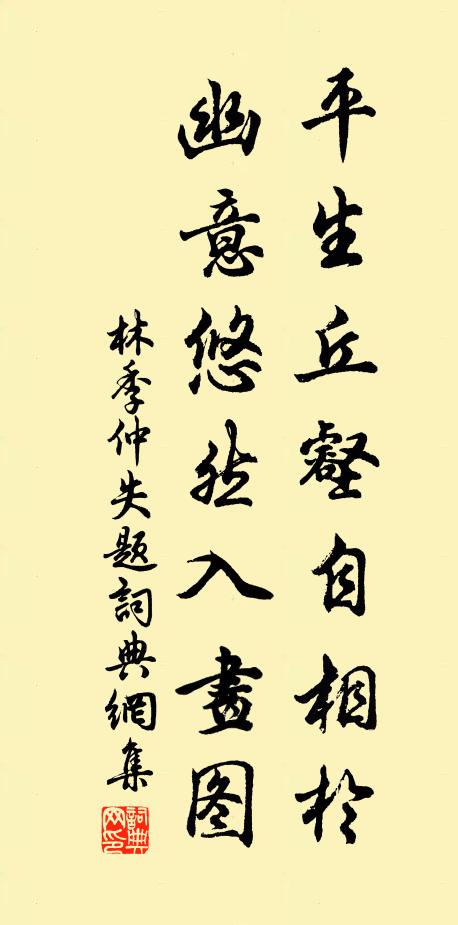 平生丘壑自相於
幽意悠然入畫图
林季仲失题詞典網集
詞典網印